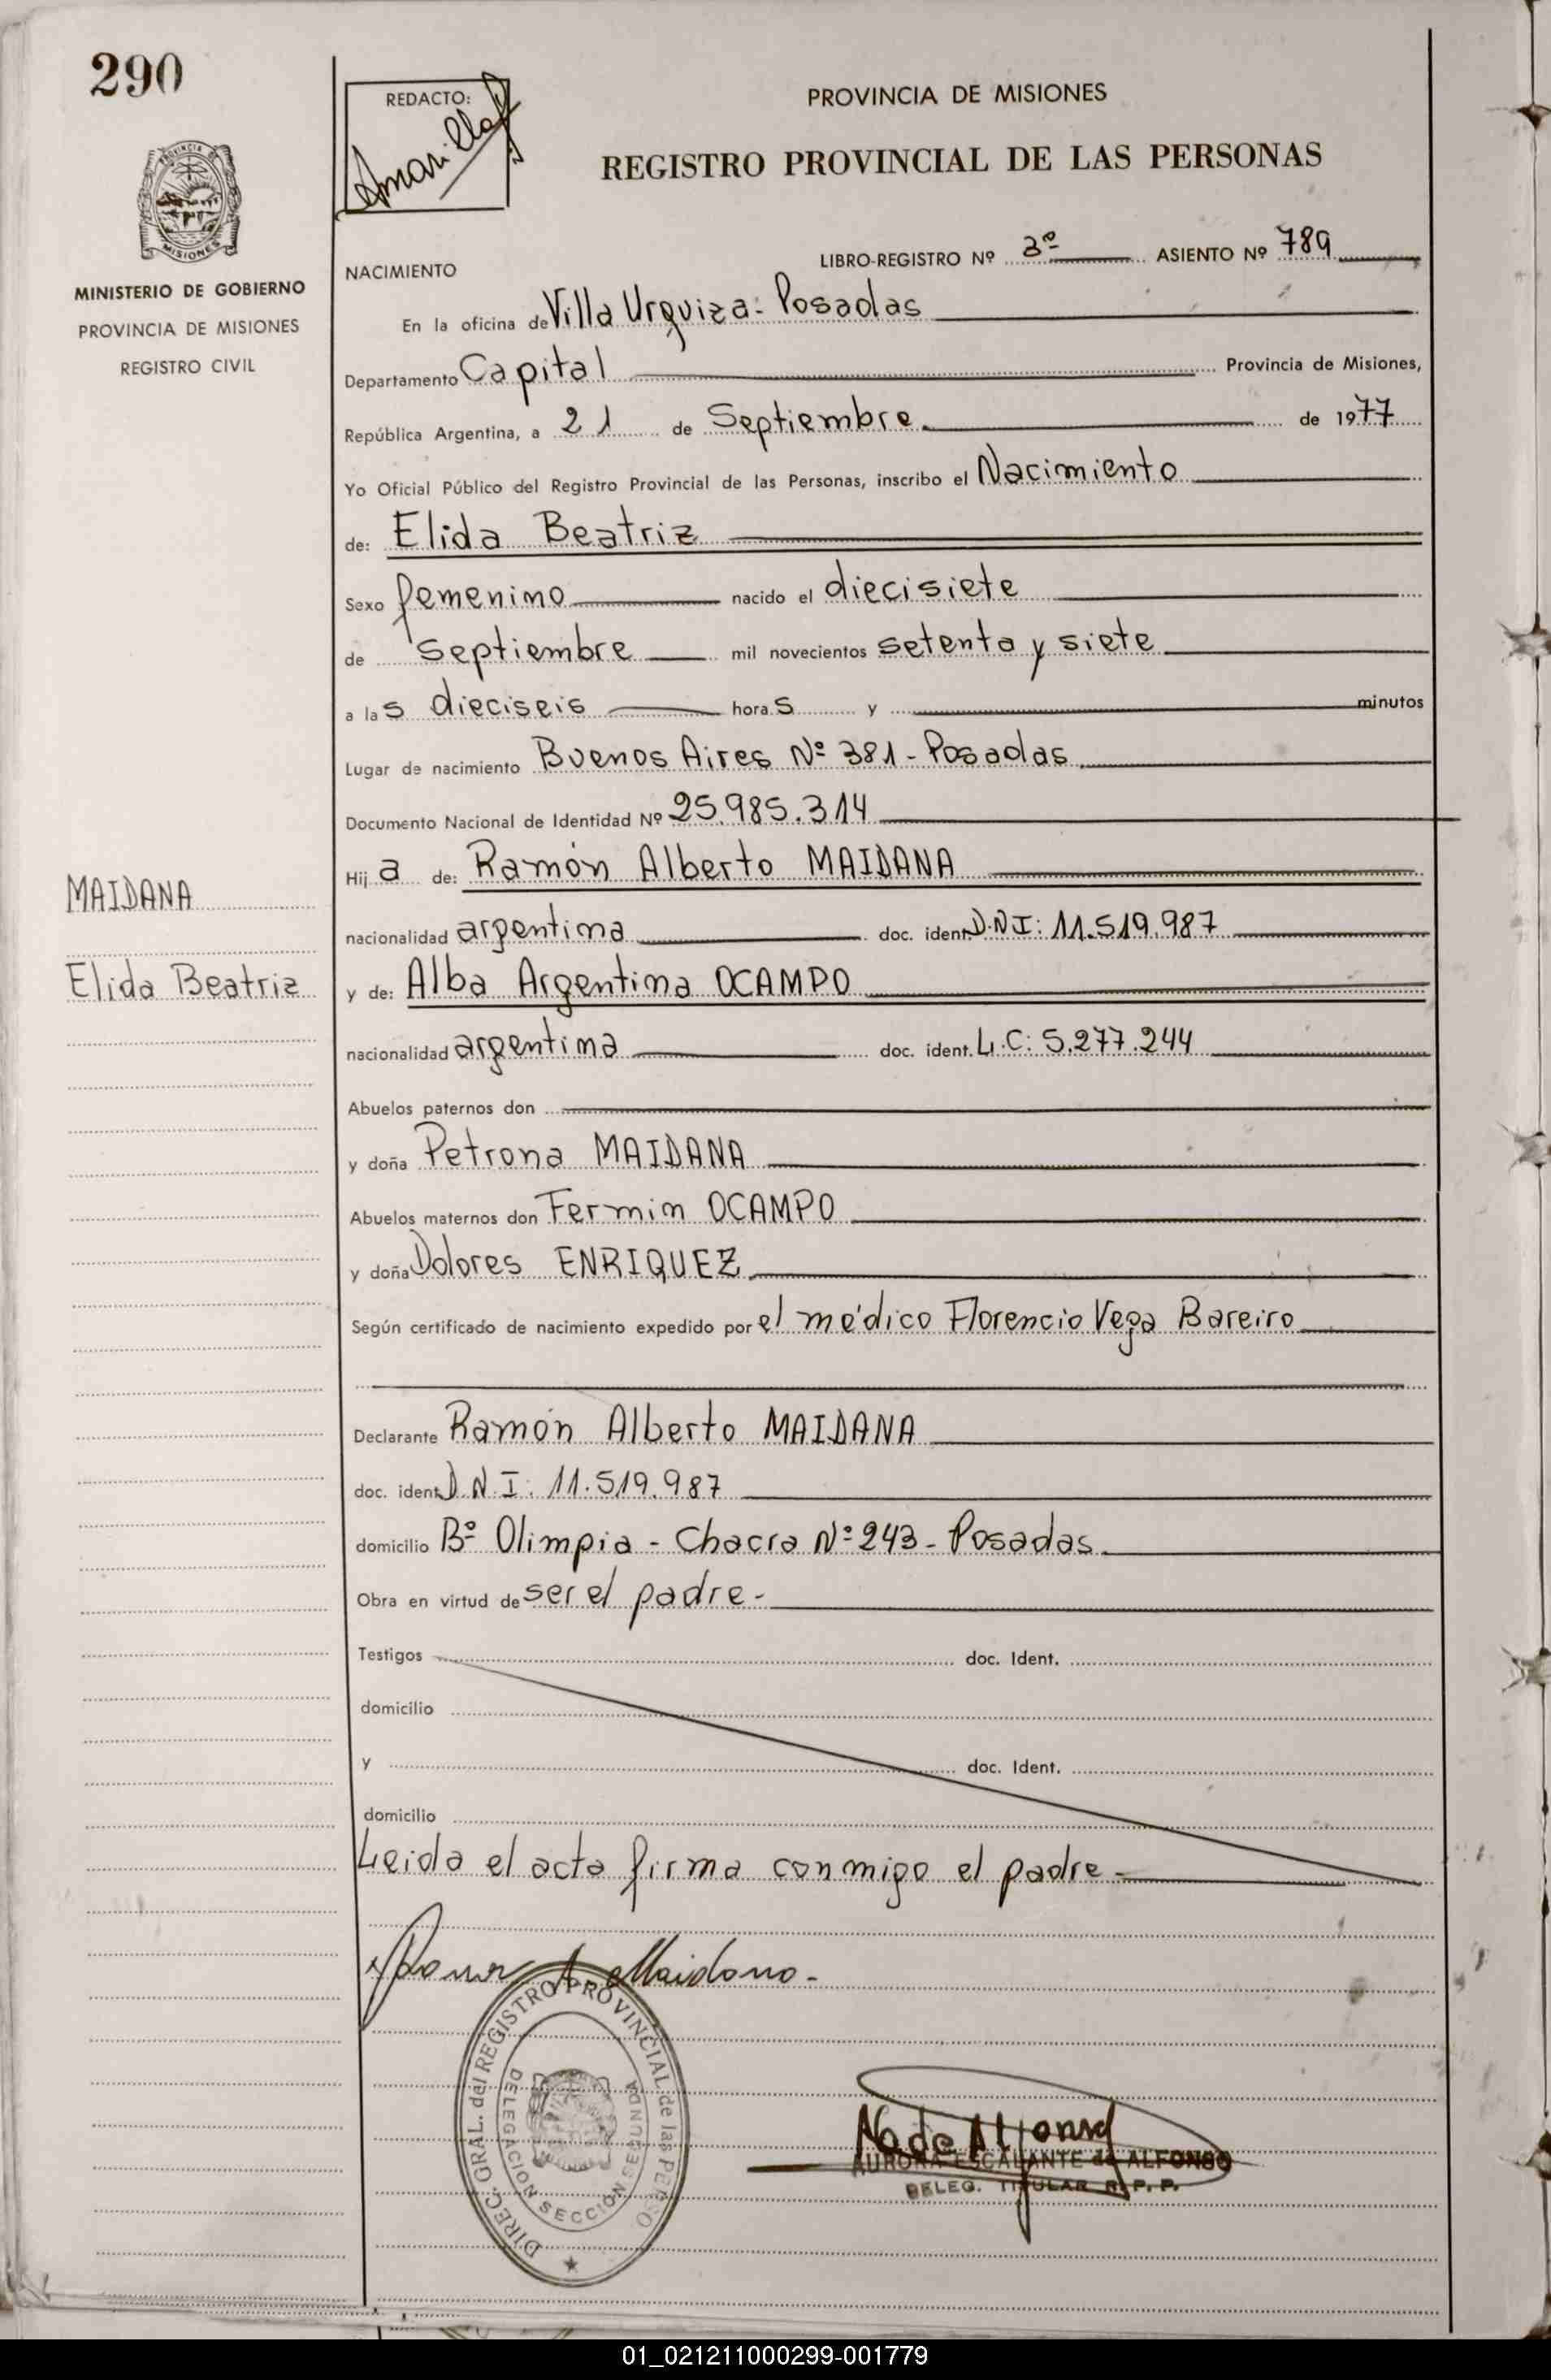 290
REDACTO:
Amarilla
PROVINCIA DE MISIONES
REGISTRO PROVINCIAL DE LAS PERSONAS
PROVINCIA DE
MISIONES
MINISTERIO DE GOBIERNO
PROVINCIA DE MISIONES
REGISTRO CIVIL
NACIMIENTO
LIBRO-REGISTRO Nº 3º ASIENTO Nº 789
En la oficina de Villa Urquiza - Posadas
Departamento Capital Provincia de Misiones,
República Argentina, a 21 de Septiembre de 1977
Yo Oficial Público del Registro Provincial de las Personas, inscribo el Nacimiento
de: Elida Beatriz
Sexo femenino nacido el diecisiete
de septiembre mil novecientos setenta y siete
a las dieciseis horas y minutos
Lugar de nacimiento Buenos Aires Nº 381 - Posadas
Documento Nacional de Identidad Nº 25.985.314
Hija de: Ramón Alberto MAIDANA
MAIDANA
nacionalidad argentina doc. ident. D.N.I: 11.519.987
Elida Beatriz
y de: Alba Argentina OCAMPO
nacionalidad argentina doc. ident. L.C: 5.277.244
Abuelos paternos don
y doña Petrona MAIDANA
Abuelos maternos don Fermin OCAMPO
y doña Dolores ENRIQUEZ
Según certificado de nacimiento expedido por el médico Florencio Vega Bareiro
Declarante Ramón Alberto MAIDANA
doc. ident. D.N.I: 11.519.987
domicilio Bº Olimpia - Chacra Nº 243 - Posadas
Obra en virtud de ser el padre -
Testigos doc. Ident.
domicilio
y doc. Ident.
domicilio
Leida el acta firma conmigo el padre -
Ramon A. Maidana -
DIREC. GRAL. del REGISTRO PROVINCIAL de las PERSO
DELEGACION SECCION SEGUNDA
de Alfonso
AURORA ESCALANTE de ALFONSO
DELEG. TITULAR R. P. P.
01_021211000299-001779